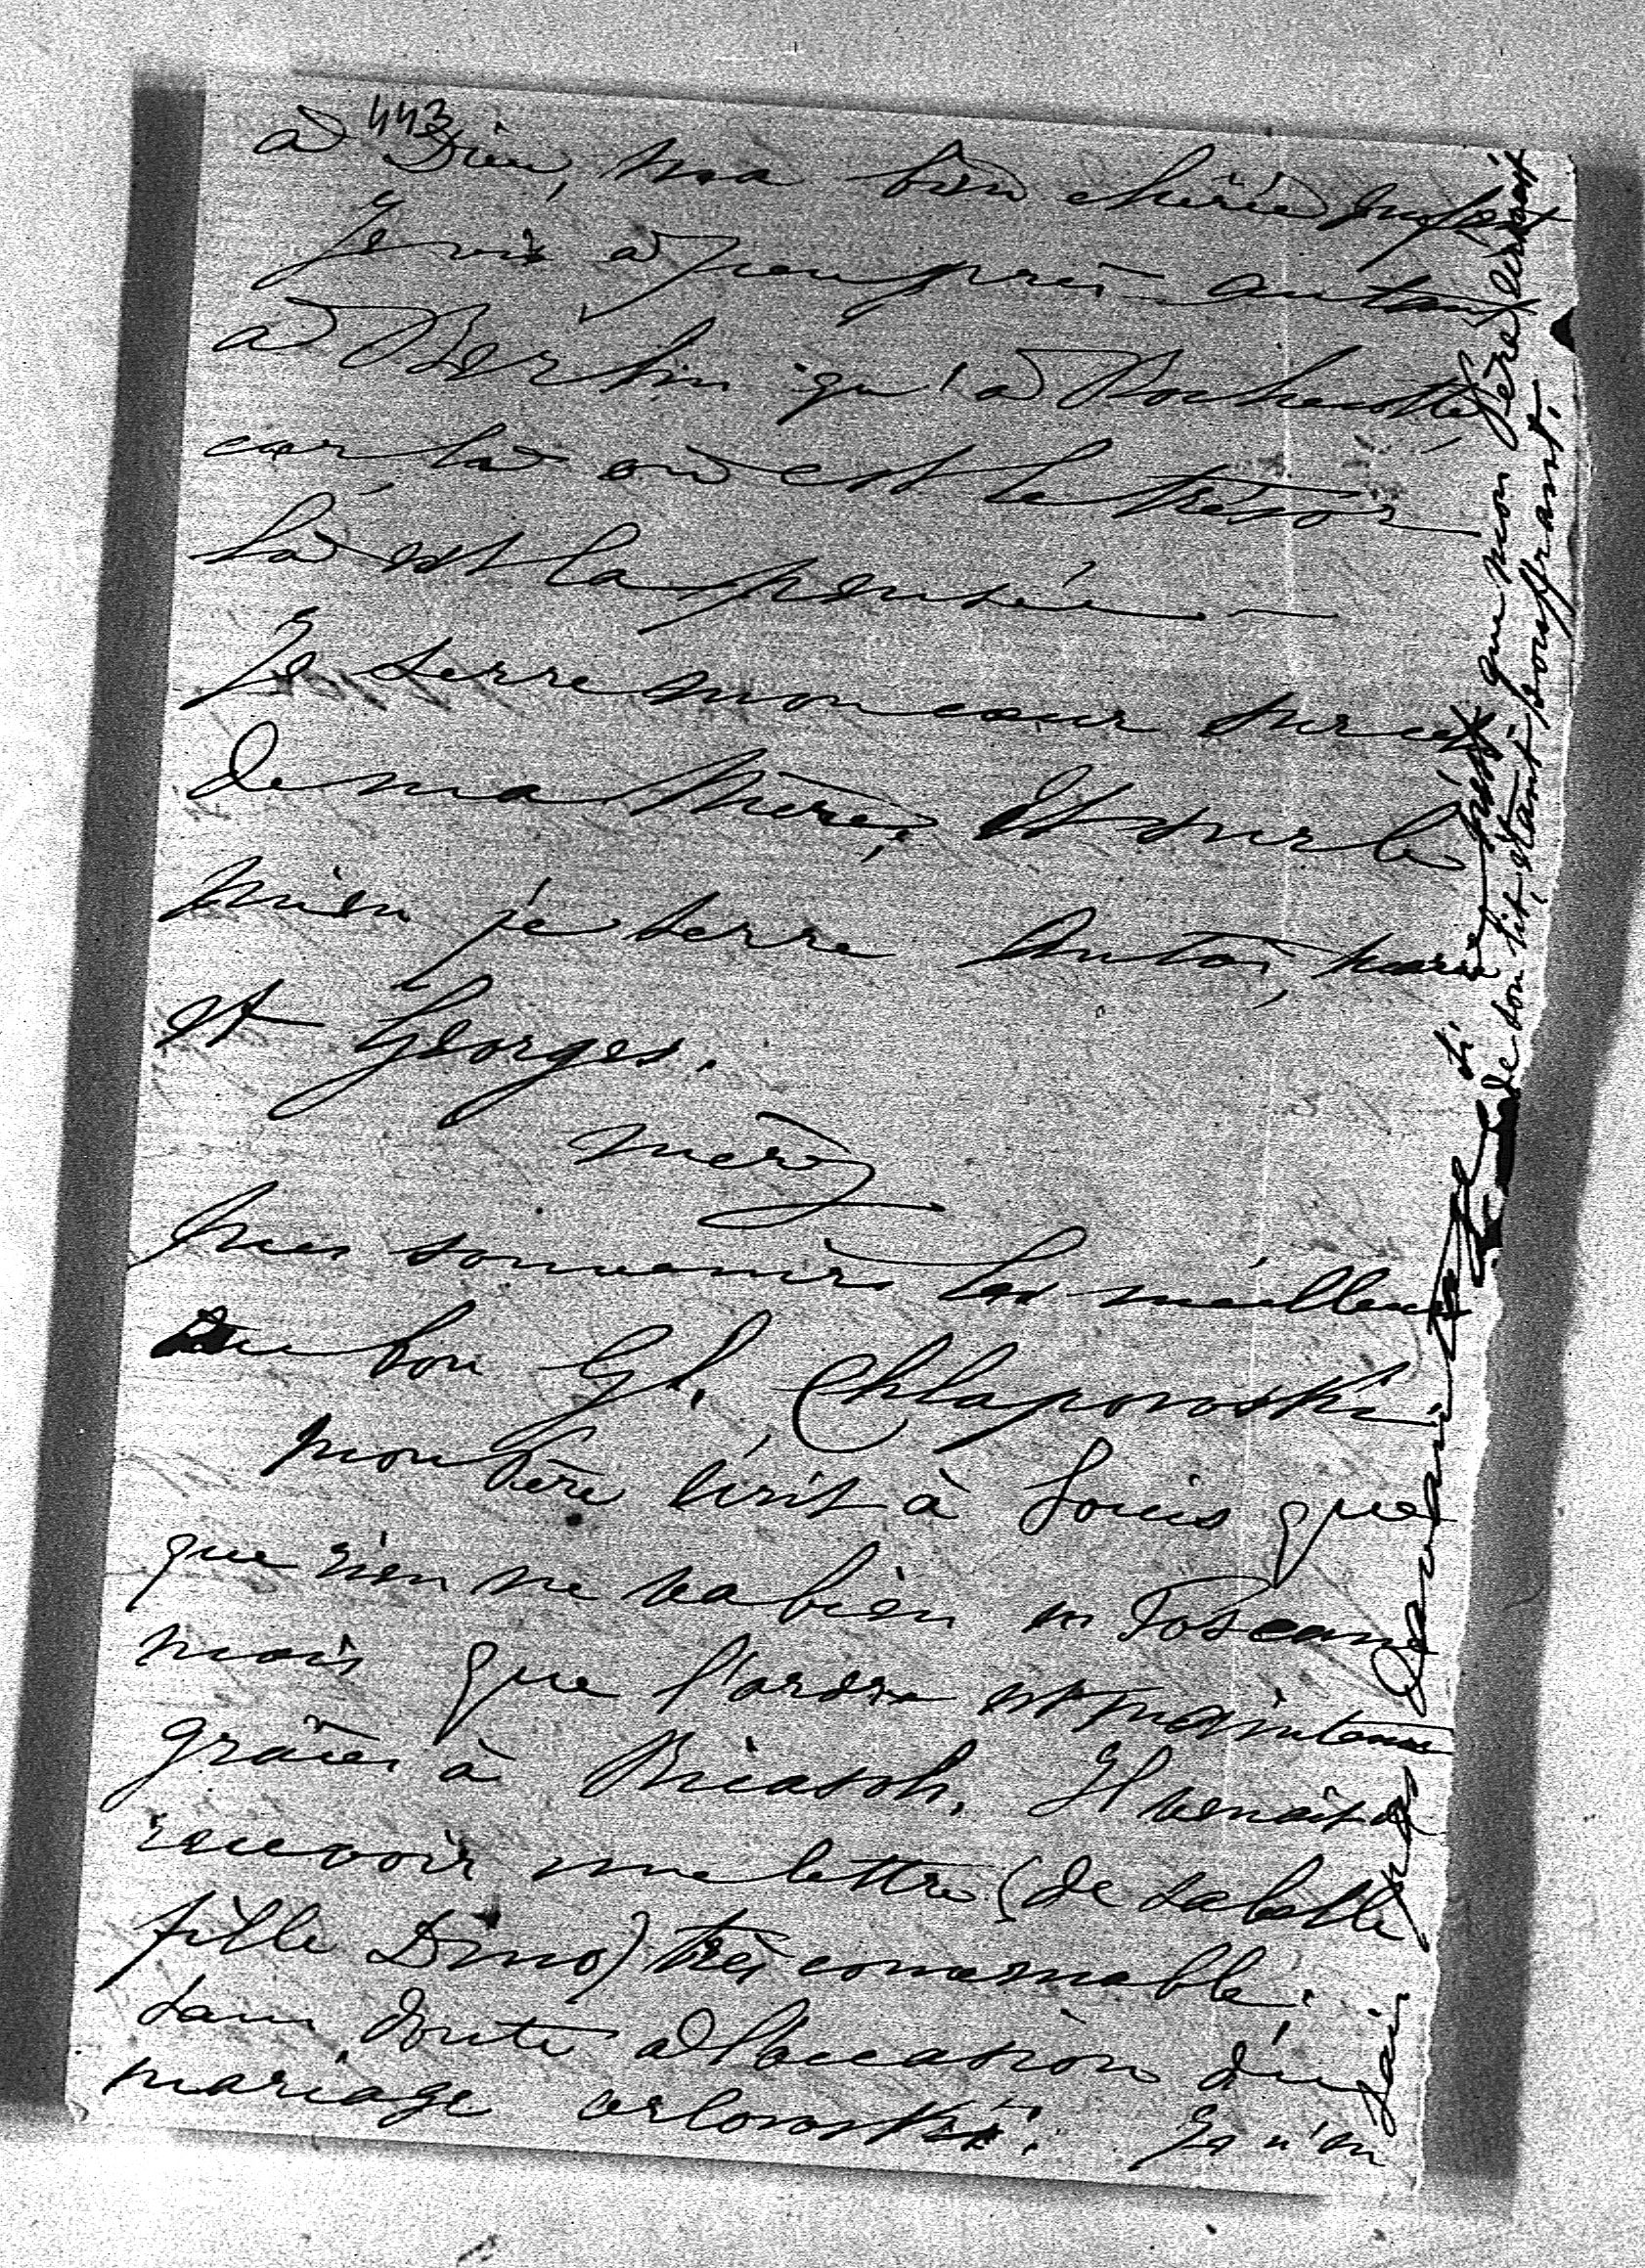 443
à Dieu, ma bien chérie enfant
Je vis à peu près autant
à Berlin qu'à Rochecotte
car là où est le trésor
là est la pensée —
Je serre mon cœur sur celui
de ma Mère, et sur le
mien je serre Anton, marie
et Georges.
mère
mes souvenirs les meilleurs
au bon Gl. Chlapowski
mon Père écrit à Louis que
que rien ne va bien en Toscane
mais que l'ordre est maintenu
grâces à Ricasoli. Il venait de
recevoir une lettre (de sa belle
fille Dino) très convenable.
sans doute à l'occasion du
mariage orlowski. Je n'en
sais
que mon Père écrivait
de son lit, étant souffrant.